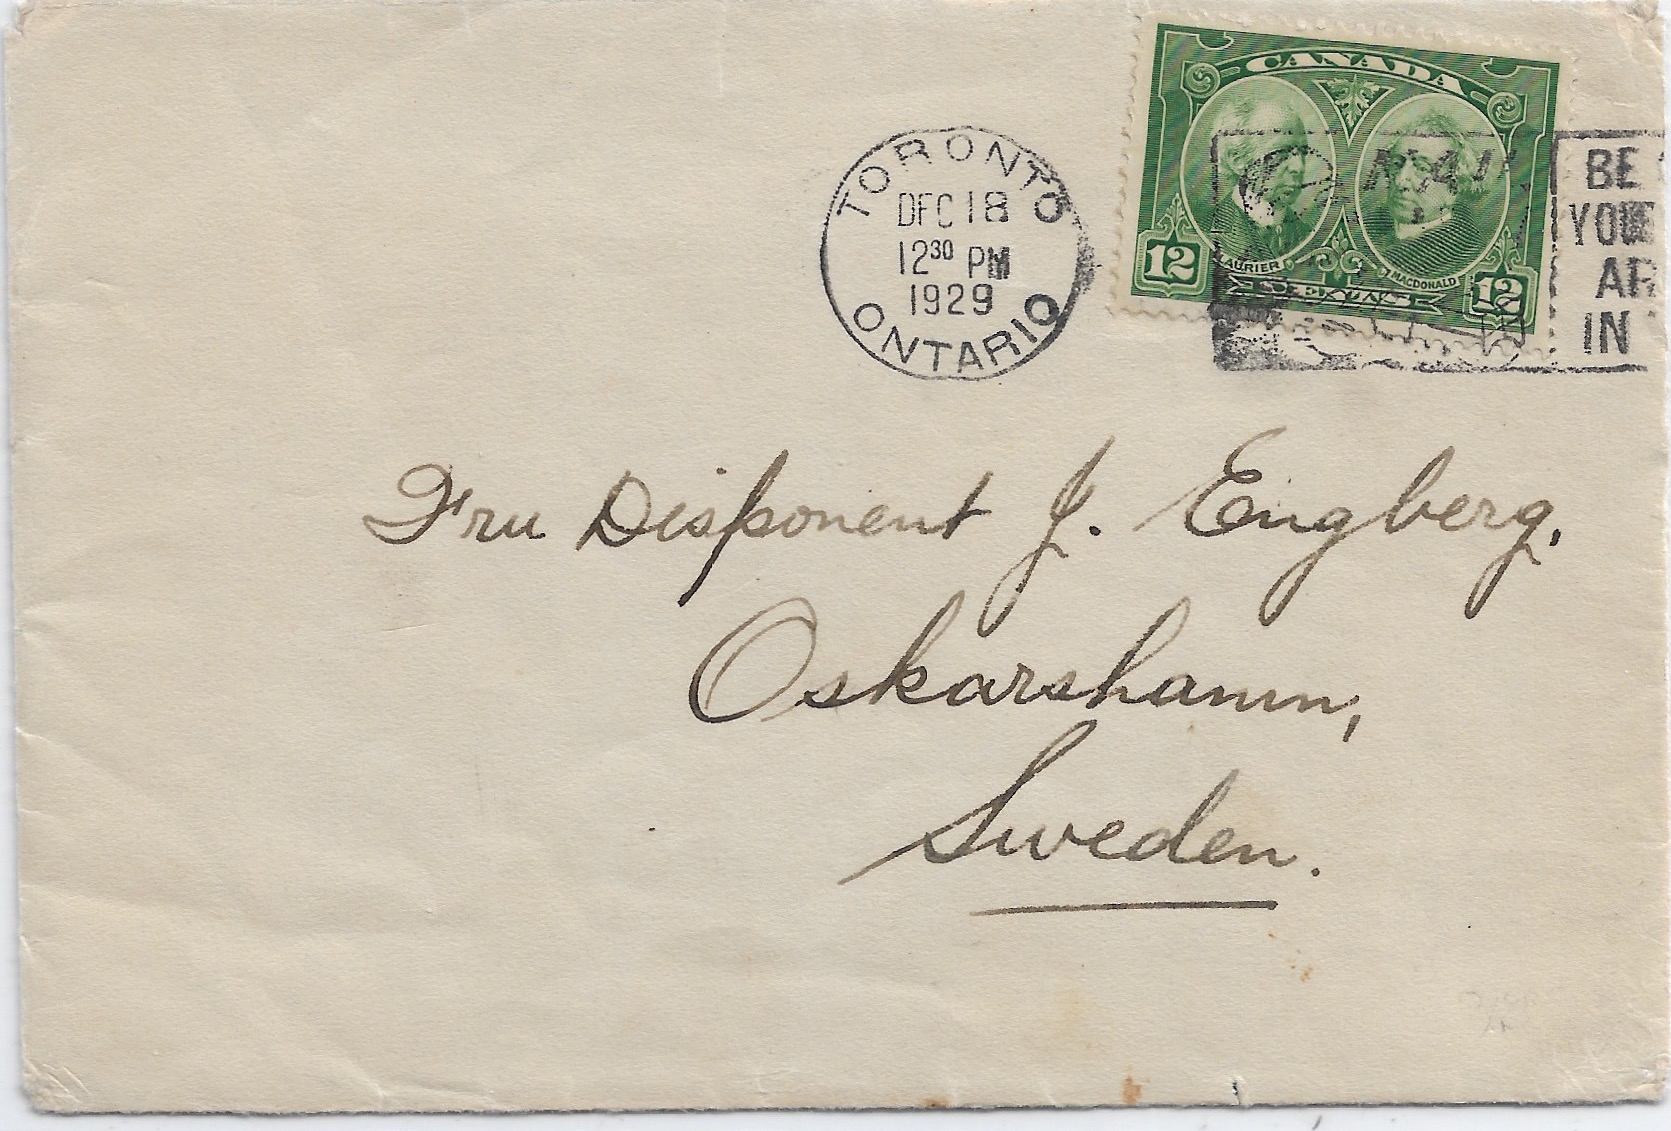 CANADA
TORONTO
DEC 18
12 30 PM
1929
ONTARIO
LAURIER
MACDONALD
12 CENTS 12
BE
YOUR
AR
IN
Fru Disponent J. Engberg,
Oskarshamn,
Sweden.